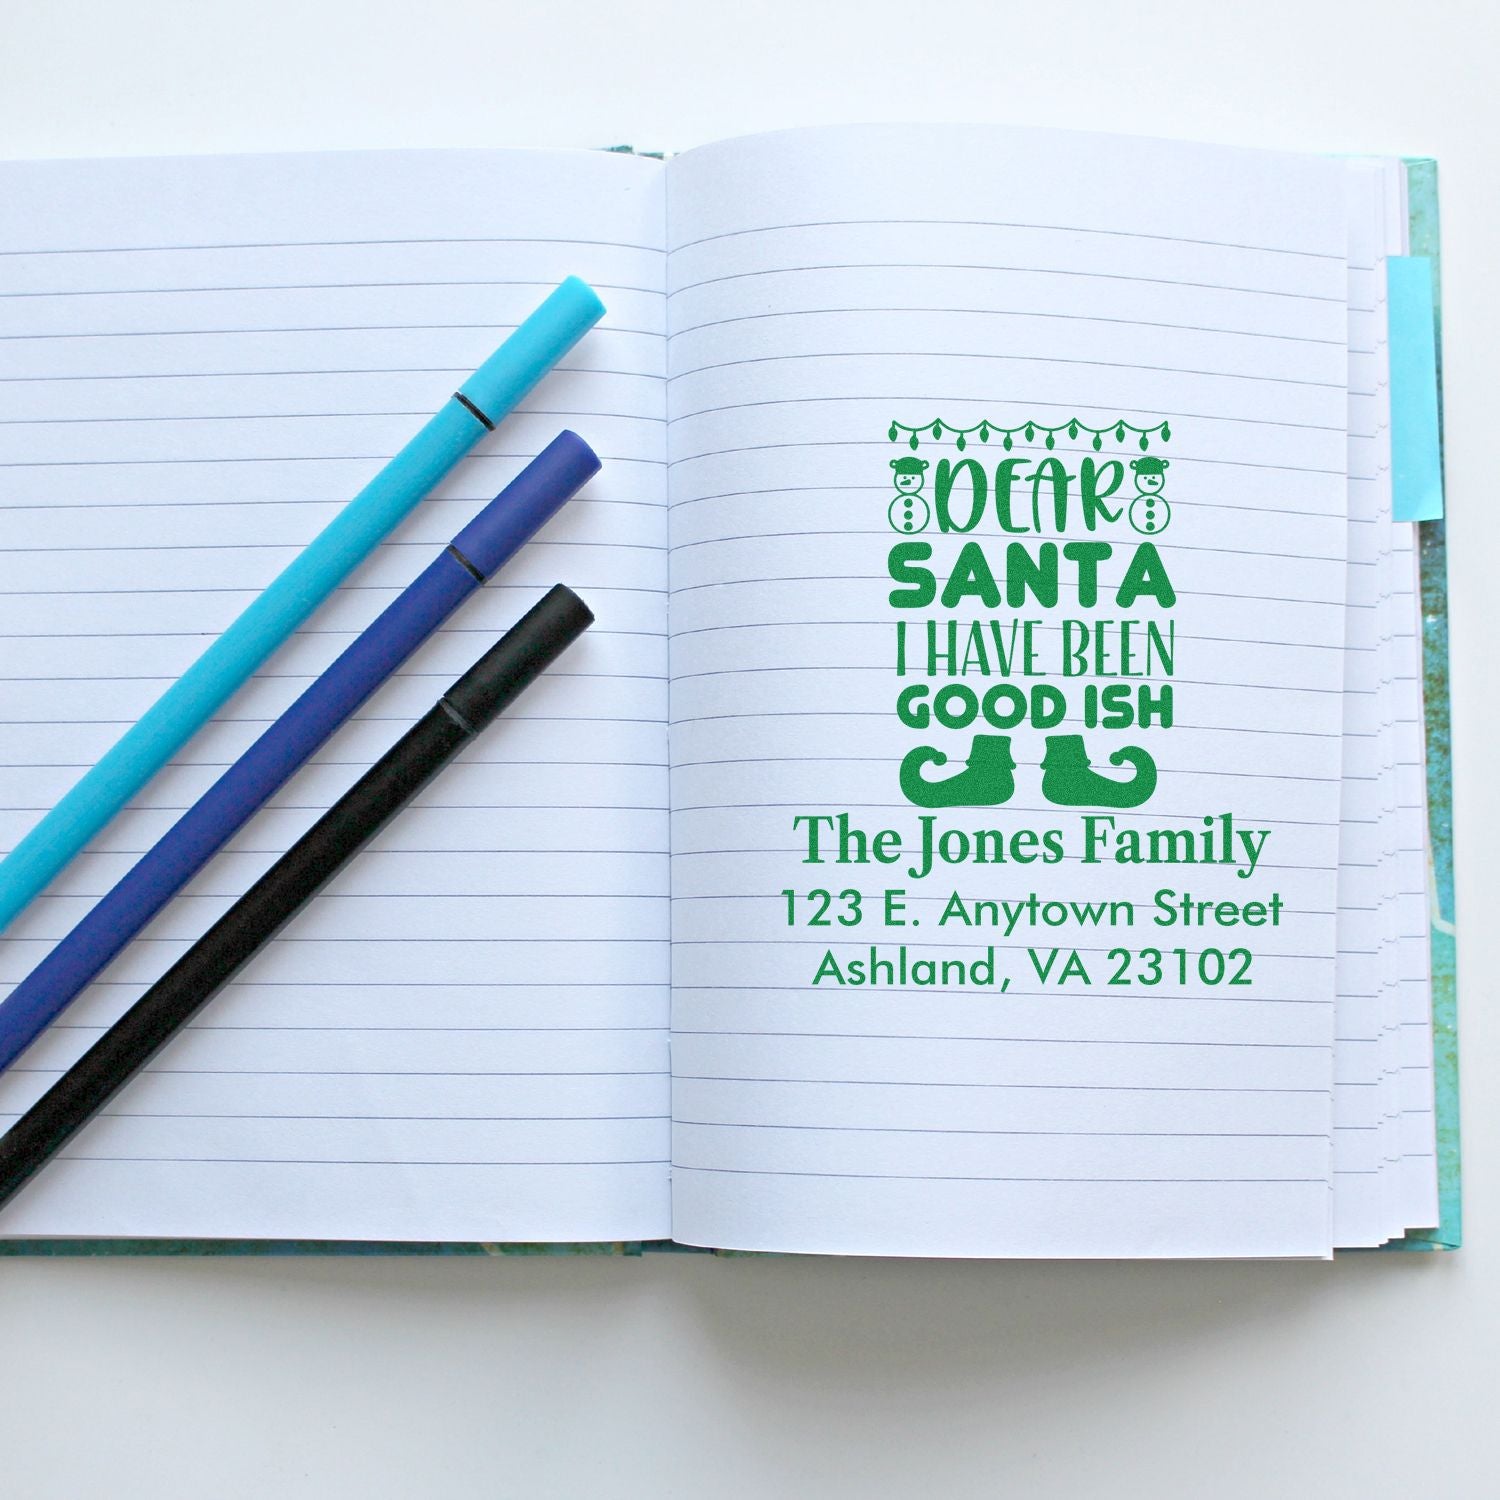 DEAR
SANTA
I HAVE BEEN
GOOD ISH
The Jones Family
123 E. Anytown Street
Ashland, VA 23102